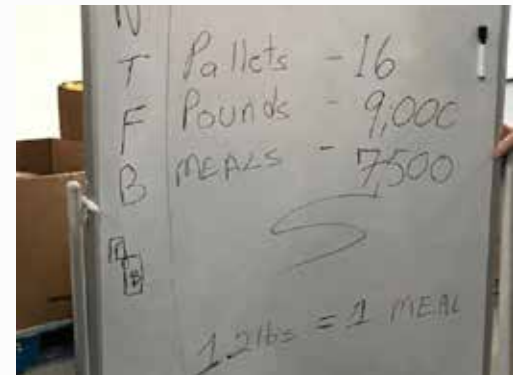 N
T Pallets - 16
F Pounds - 9,000
B MEALS - 7,500
1.2 lbs = 1 MEAL